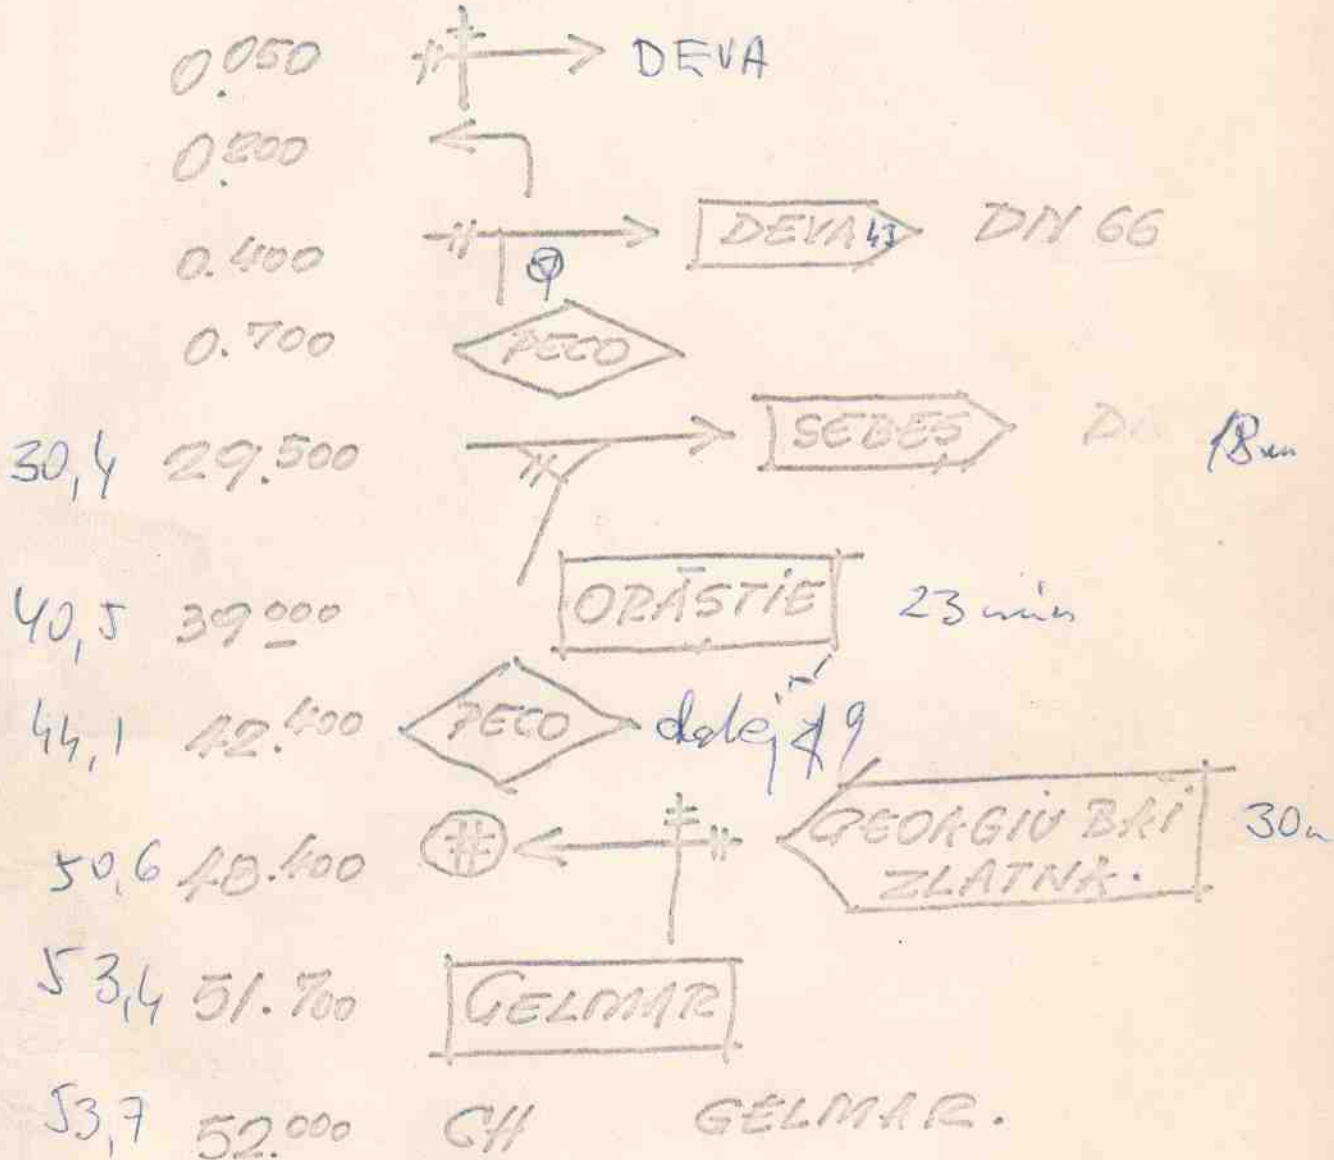 0.050 DEVA
0.200
0.400 DEVA 43 DN 66
0.700 PECO
30,4 29.500 SEBEȘ 18 min
40,5 39.000 ORĂȘTIE 23 min
44,1 42.400 PECO
50,6 48.400 GEORGIU BĂI 30
ZLATNA.
53,4 51.700 GELMAR
53,7 52.000 CH GELMAR.